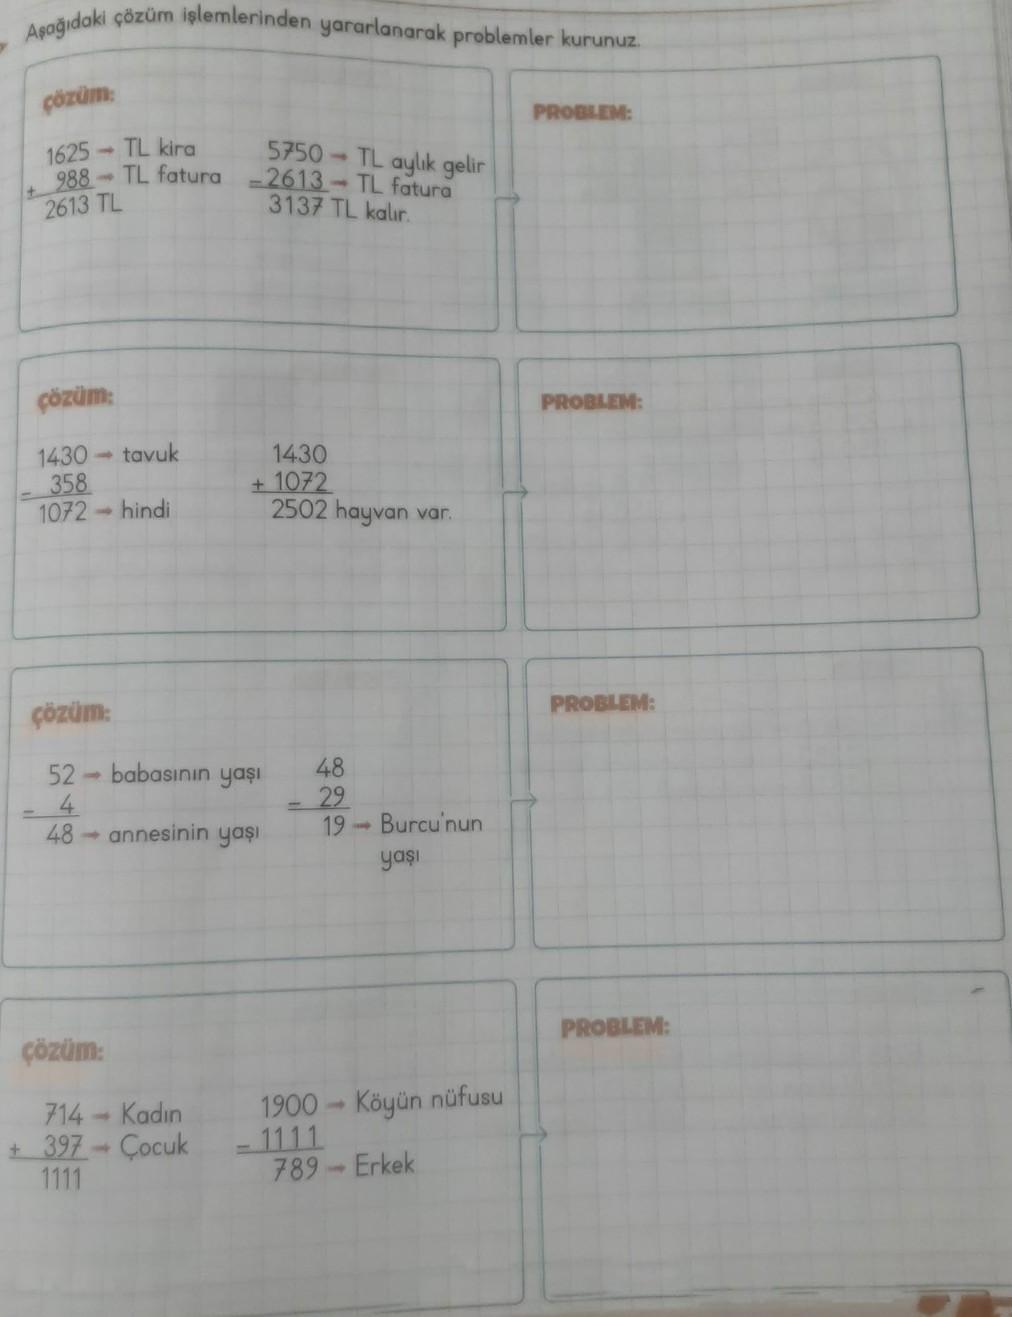 Aşağıdaki çözüm işlemlerinden yararlanarak problemler kurunuz.
çözüm:
1625 → TL kira
+ 988 → TL fatura
2613 TL
5750 → TL aylık gelir
- 2613 → TL fatura
3137 TL kalır.
PROBLEM:
çözüm:
1430 → tavuk
- 358
1072 → hindi
1430
+ 1072
2502 hayvan var.
PROBLEM:
çözüm:
52 → babasının yaşı
- 4
48 → annesinin yaşı
48
- 29
19 → Burcu'nun
yaşı
PROBLEM:
çözüm:
714 → Kadın
+ 397 → Çocuk
1111
1900 → Köyün nüfusu
- 1111
789 → Erkek
PROBLEM: